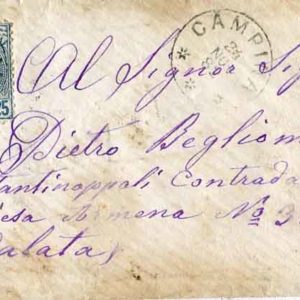 25
CAMPI
Al Signor Si
Pietro Begliom
tantinoppoli Contrada
iesa Armena No 3
alata